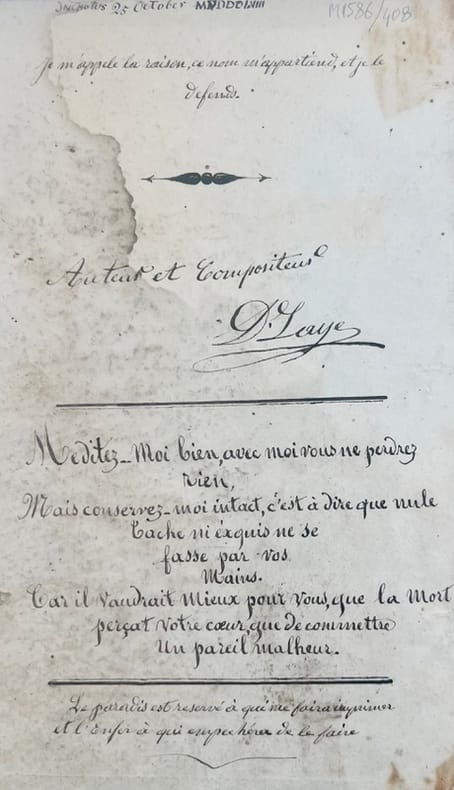 25 October
M1586/408
je m'appele la raison, ce nom m'appartiend, et je le
defends.
Auteur et Compositeur
D. Laye
Meditez-Moi bien, avec moi vous ne perdrez
rien,
Mais conservez-moi intact, c'est à dire que nule
Tache ni exquis ne se
fasse par vos
Mains.
Car il vaudrait Mieux pour vous, que la Mort
perçat votre cœur, que de commettre
Un pareil malheur.
Le paradis est reservé à qui me faira imprimer
et l'Enfer à qui empechéra de le faire